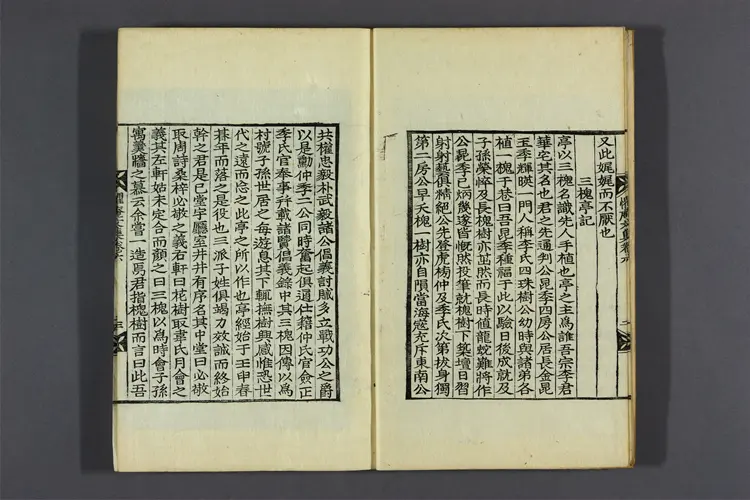 又此娓娓而不厭也
三槐亭記
亭以三槐名識先人手植也亭之主爲誰吾宗李君
華宅其名也君之先通判公昆季四房公居長金昆
玉季輝暎一門人稱李氏四珠樹公幼時與諸弟各
植一槐于巷曰吾昆季種福于此以驗日後成就及
子孫榮悴及長槐樹亦茁然而長時値龍蛇難將作
公昆季已炳幾遂皆慨然投筆就槐樹下築壇日習
射射藝俱精絶公先登虎榜仲及季氏次第拔身獨
第二房公早夭槐一樹亦自隕當海寇充斥東南公
共權忠毅朴武毅諸公倡義討賊多立戰功公之爵
以是勳仲季二公同時奮起俱通仕籍仲氏官僉正
季氏官奉事幷載諸賢倡義錄中其三槐因傳以爲
村號子孫世居之每遊息其下輒撫樹興感惟恐世
代之遠而忘之此亭之所以作也亭經始于壬申春
朞年而落之是役也三派子姓俱竭力效誠而終始
幹之君是已堂宇廳室井井有序名其中堂曰必敬
取周詩桑梓必敬之義右軒曰花樹取韋氏月會之
義其左軒始未定合而顏之曰三槐以爲時會子孫
寓羹墻之慕云余嘗一造焉君指槐樹而言曰此吾